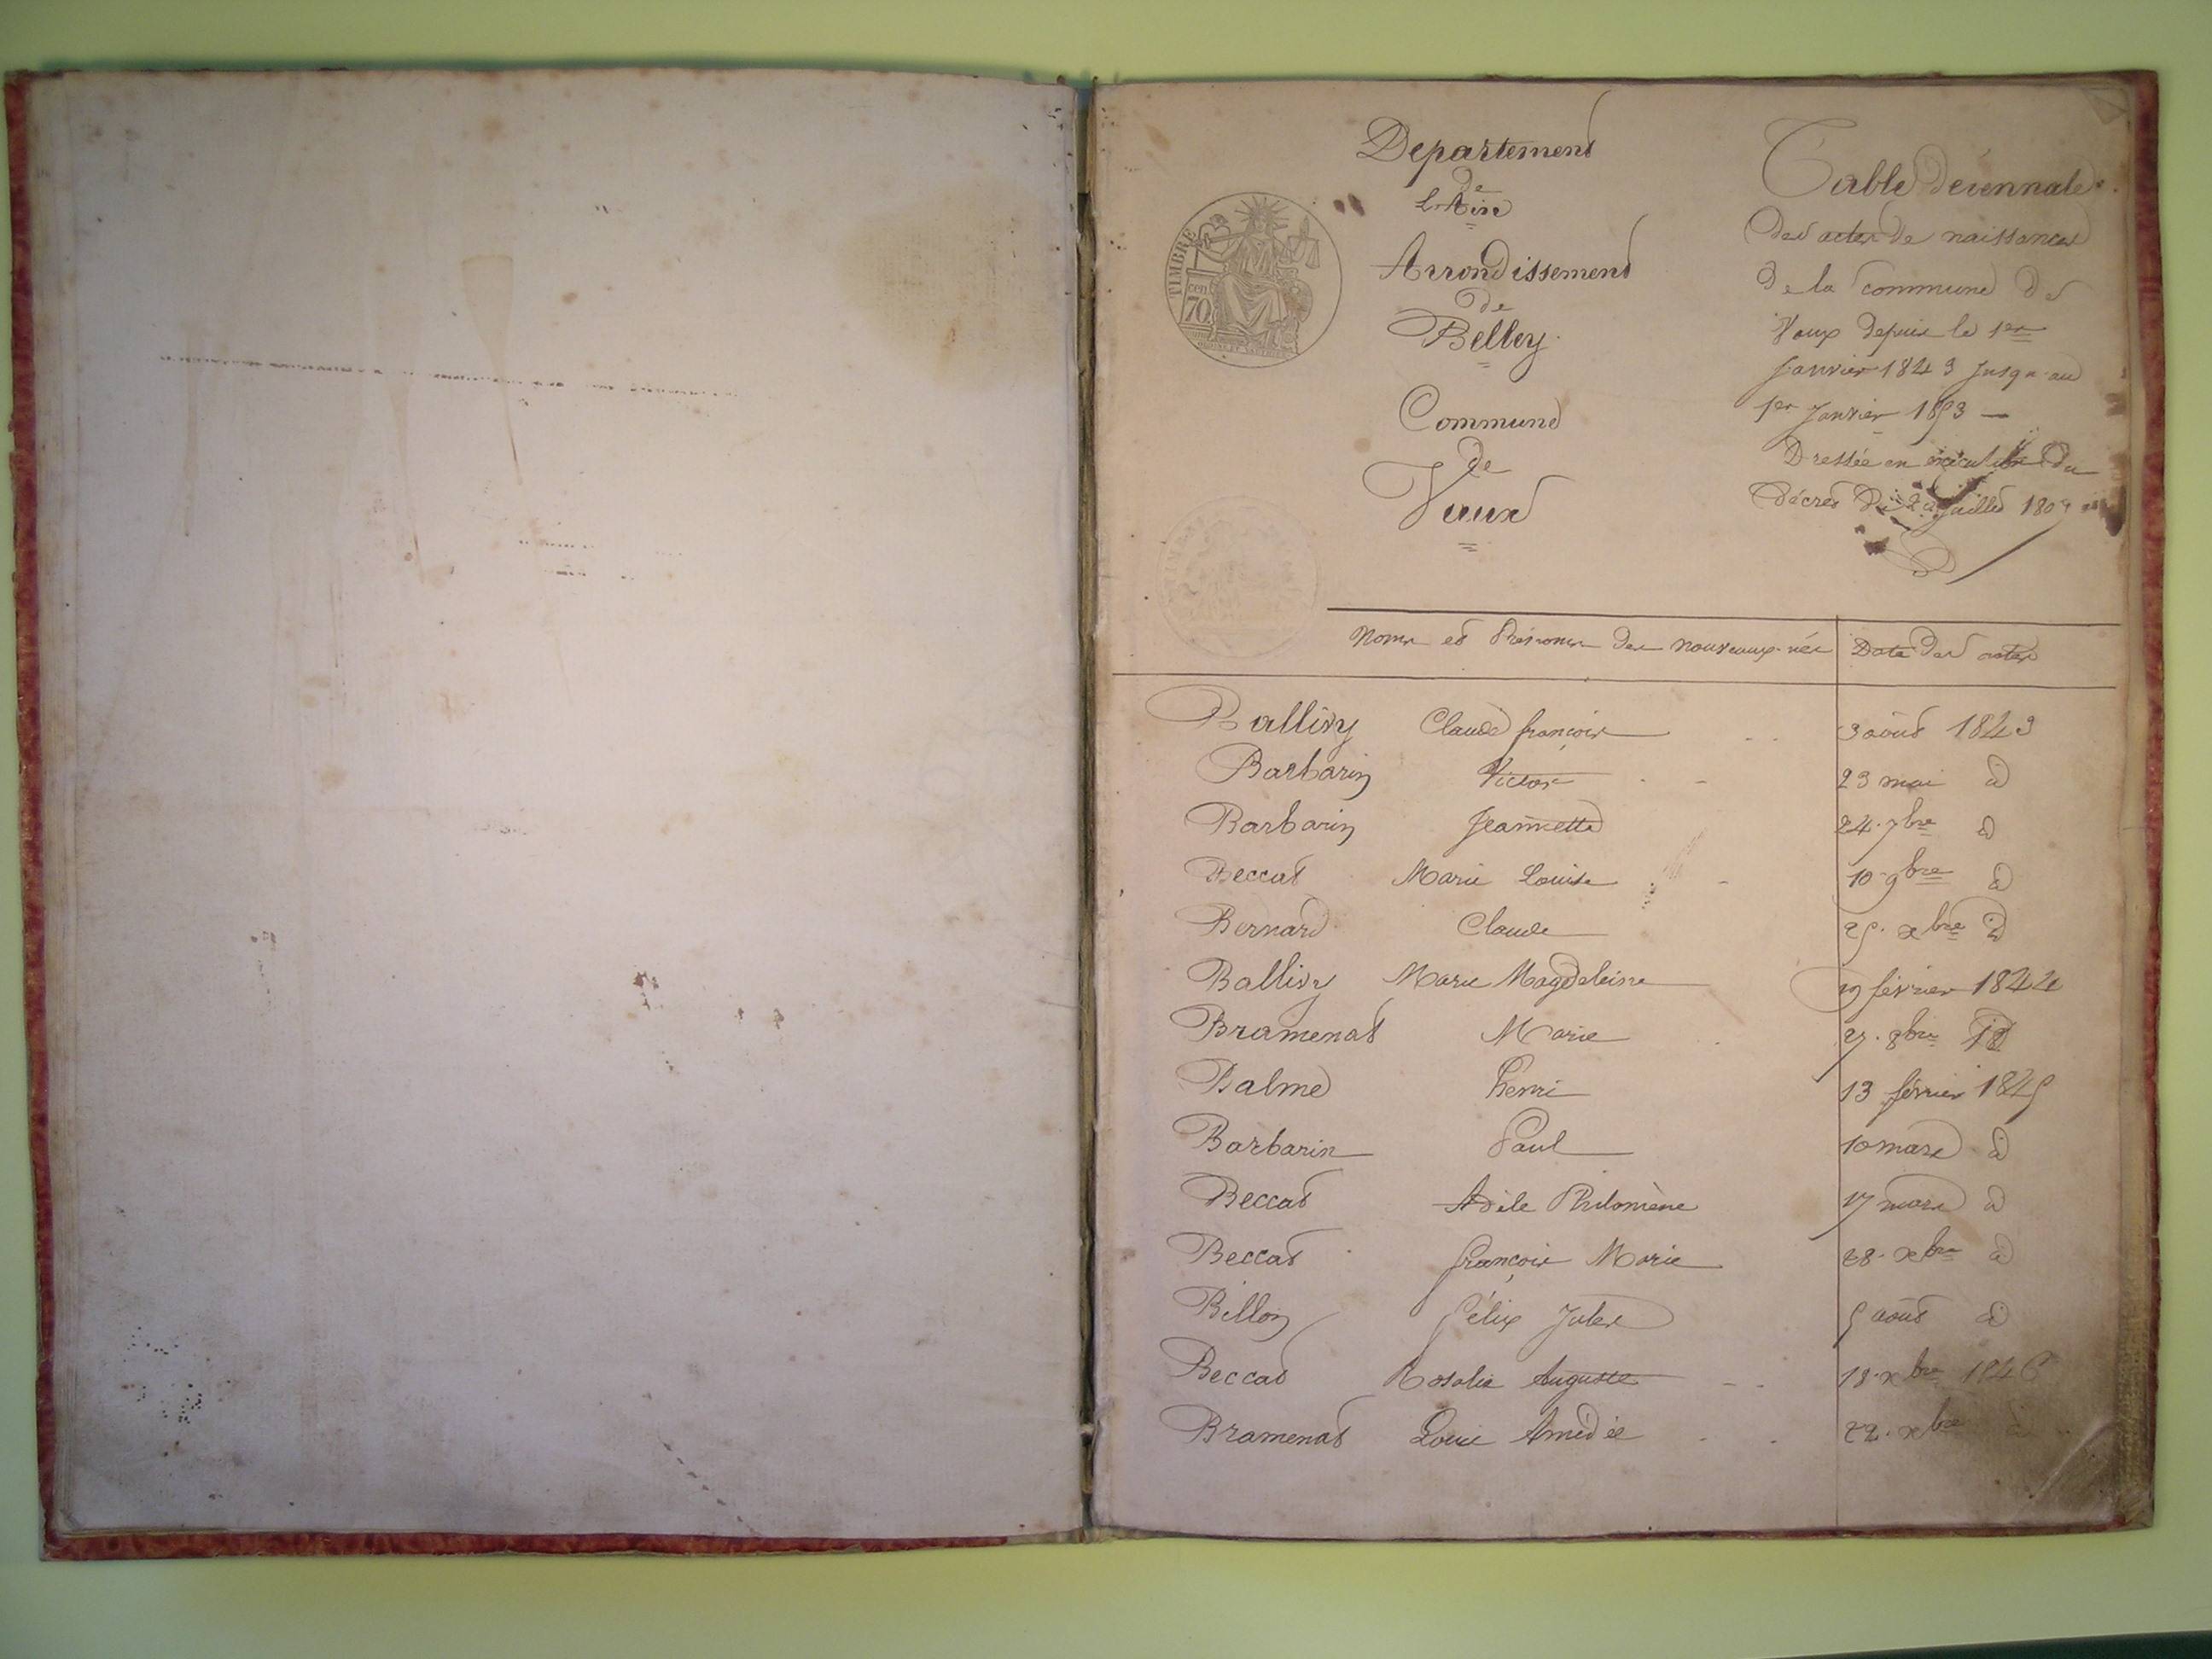 Departement
de
L'Ain
Arrondissement
de
Belley
Commune
de
Vaux
TIMBRE
cen
70
Table décennale
des actes de naissances
de la commune de
Vaux depuis le 1er
Janvier 1843 Jusqu'au
1er Janvier 1853 —
Dressée en exécution du
Décret du 20 Juillet 1807
Noms et Prénoms des nouveaux-nés Date des actes
Ballivy Claude françois 3 août 1843
Barbarin Victor 23 mai d
Barbarin Jeannette 24. 7bre d
Beccat Marie Louise 10. 9bre d
Bernard Claude 25. xbre d
Ballivy Marie Magdeleine 19 février 1844
Bramenat Marie 27. 8bre d
Balme henri 13 février 1845
Barbarin Paul 10 mars d
Beccat Adèle Philomène 17 mars d
Beccat françois Marie 28. xbre d
Billon félix Jules 5 août d
Beccat Rosalie Auguste 18. xbre 1846
Bramenat Louis Amédée 22. xbre d